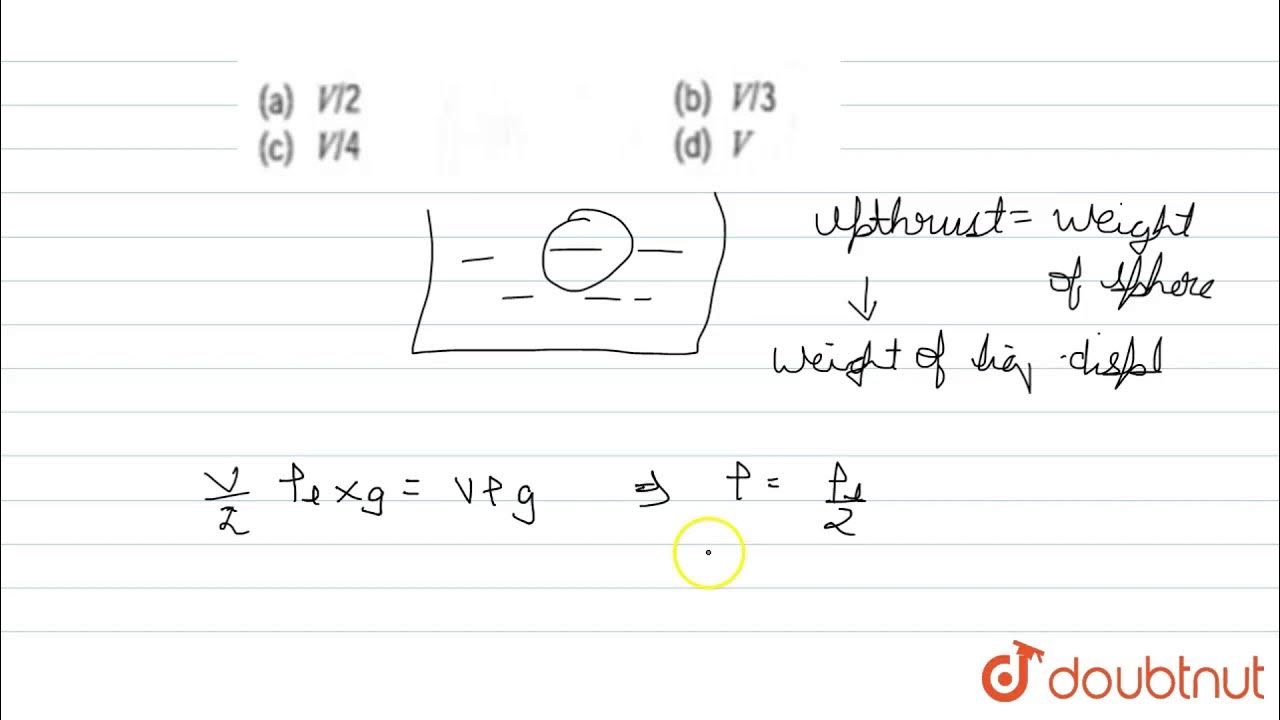 (a) V/2 (b) V/3
(c) V/4 (d) V
upthrust = weight
of sphere
↓
weight of liq. displ
V/2 ρₗ × g = Vρg ⇒ ρ = ρₗ/2
doubtnut